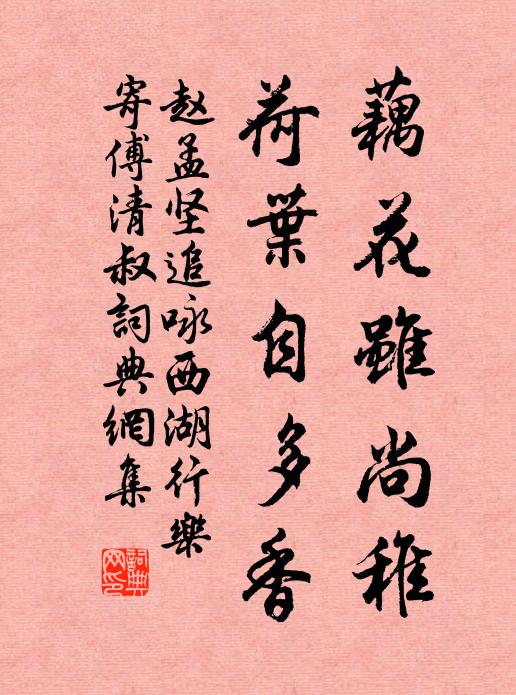 藕花雖尚稚
荷葉自多香
赵孟坚追咏西湖行樂
寄傅清叔詞典網集
詞典网印